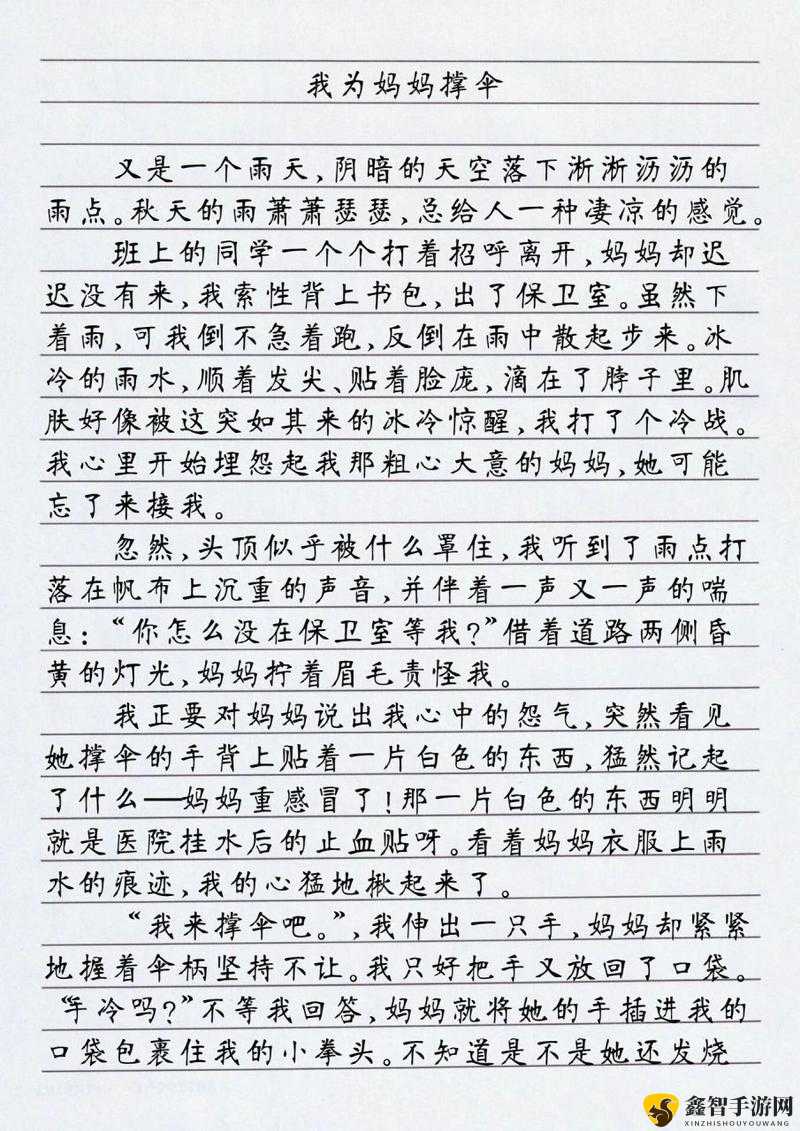 我为妈妈撑伞
又是一个雨天,阴暗的天空落下淅淅沥沥的
雨点。秋天的雨萧萧瑟瑟,总给人一种凄凉的感觉。
班上的同学一个个打着招呼离开,妈妈却迟
迟没有来,我索性背上书包,出了保卫室。虽然下
着雨,可我倒不急着跑,反倒在雨中散起步来。冰
冷的雨水,顺着发尖、贴着脸庞,滴在了脖子里。肌
肤好像被这突如其来的冰冷惊醒,我打了个冷战。
我心里开始埋怨起我那粗心大意的妈妈,她可能
忘了来接我。
忽然,头顶似乎被什么罩住,我听到了雨点打
落在帆布上沉重的声音,并伴着一声又一声的喘
息:“你怎么没在保卫室等我?”借着道路两侧昏
黄的灯光,妈妈拧着眉毛责怪我。
我正要对妈妈说出我心中的怨气,突然看见
她撑伞的手背上贴着一片白色的东西,猛然记起
了什么——妈妈重感冒了!那一片白色的东西明明
就是医院挂水后的止血贴呀。看着妈妈衣服上雨
水的痕迹,我的心猛地揪起来了。
“我来撑伞吧。”,我伸出一只手,妈妈却紧紧
地握着伞柄坚持不让。我只好把手又放回了口袋。
“手冷吗?”不等我回答,妈妈就将她的手插进我的
口袋包裹住我的小拳头。不知道是不是她还发烧
鑫智手游网
XINZHISHOUYOUWANG